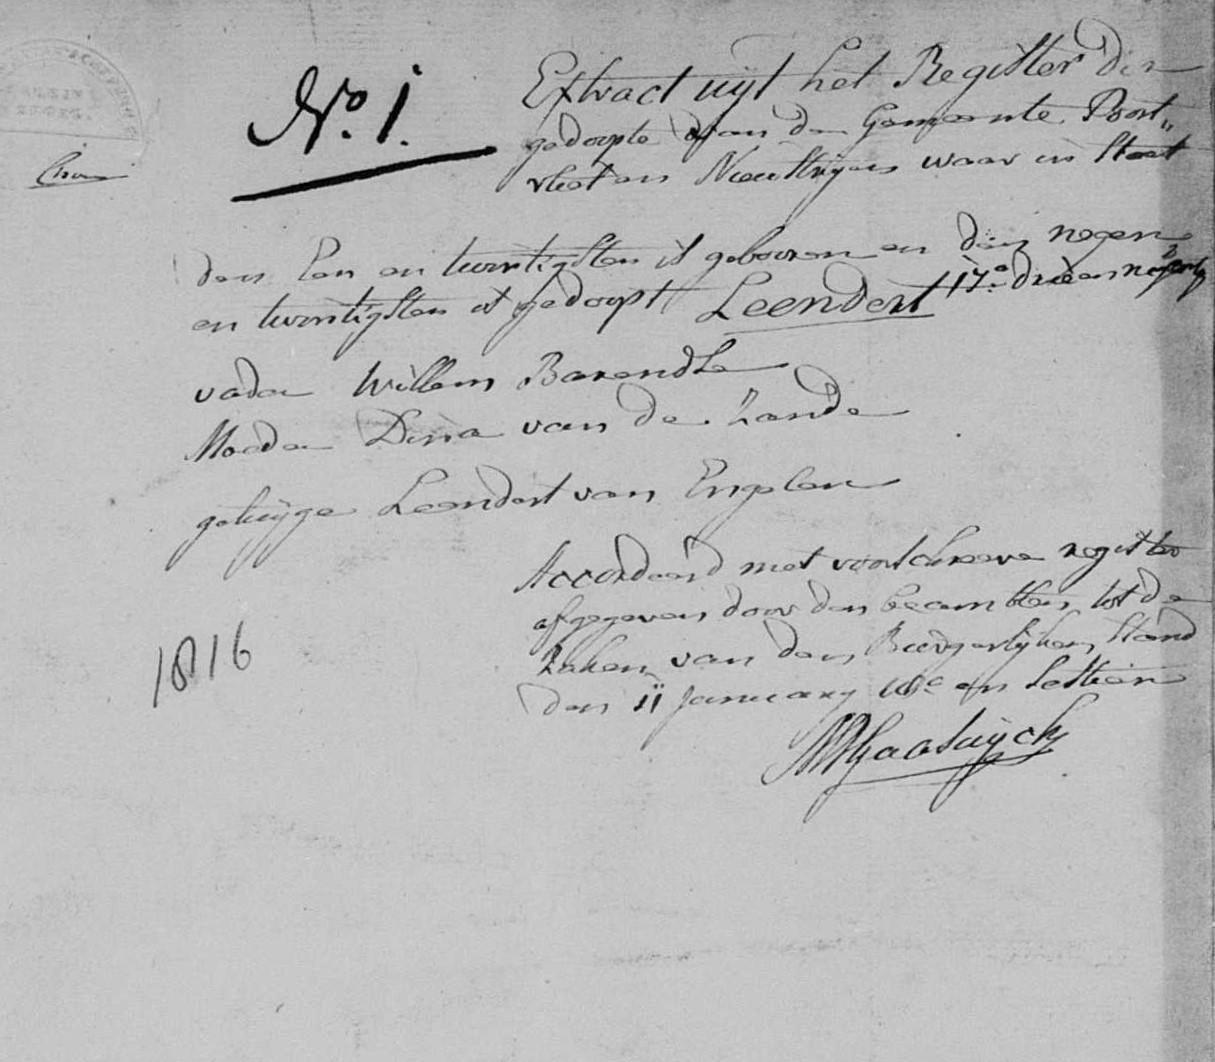 No. 1.
Extract uijt het Register der
gedoopte van de Gemeente Poort„
vliet en Nieustrijen waar in staat
den Een en twintigsten is gebooren en den negen
en twintigsten is gedoopt Leendert 17e drieennegentig
vader Willem Barendse
Moeder Dina van de Zande
getuijge Leendert van Engelen
Accordeerd met voorschreeve register
afgegeven door den beambten tot de
Zaken van den Burgerlijken Stand
den 11 January 18e en sestien
1816